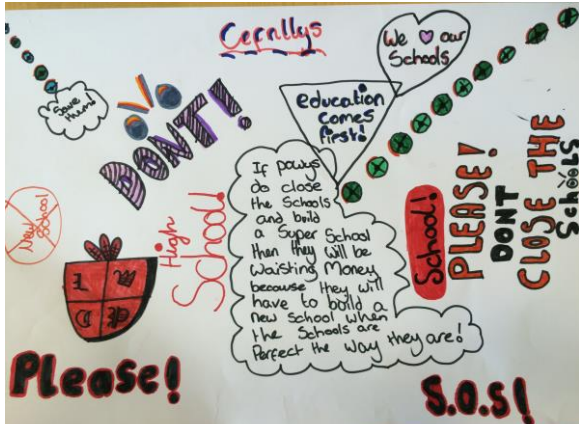 Cefnllys
We our
Schools
Save
them!
education
comes
first!
DONT!
If powys
do close
the Schools
and build
a Super School
then they will be
Waisting Money
because they will
have to build a
new School when
the Schools are
Perfect the way they are!
High
School!
New
School
School!
PLEASE!
DONT
CLOSE THE
SchOOlS
Please!
S.O.S!